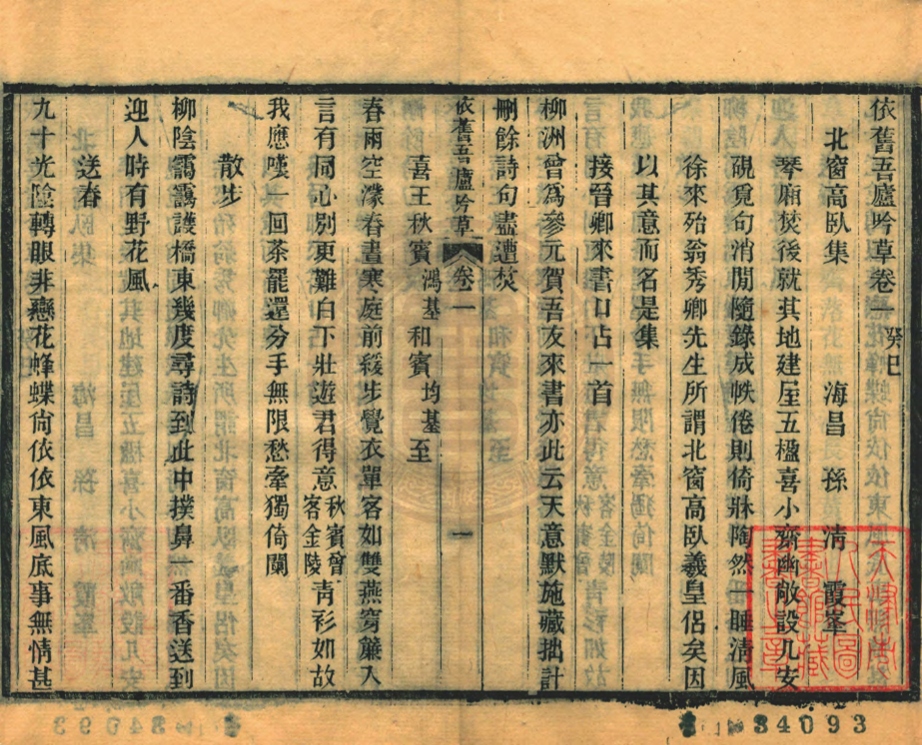 依舊吾廬吟草卷一 癸巳
北窗高臥集 海昌 孫 清 霞峯
琴廂焚後就其地建屋五楹喜小齋幽敞設几安
硯覓句消閒隨錄成帙倦則倚牀陶然一睡清風
徐來殆翁秀卿先生所謂北窗高臥羲皇侶矣因
以其意而名是集
接晉卿來書口占一首
柳洲曾爲參元賀吾友來書亦此云天意默施藏拙計
刪餘詩句盡遭焚
喜王秋賓鴻基和賓均基至
依舊吾廬吟草 卷一 一
春雨空濛春晝寒庭前緩步覺衣單客如雙燕穿簾入
言有同心別更難白下壯遊君得意秋賓曾客金陵靑衫如故
我應嘆一回茶罷還分手無限愁牽獨倚闌
散步
柳陰靄靄護橋東幾度尋詩到此中撲鼻一番香送到
迎人時有野花風
送春
九十光陰轉眼非戀花蜂蝶尙依依東風底事無情甚
34093